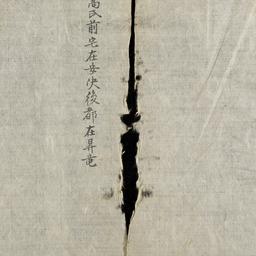 高氏前宅在安决後都在昇竜